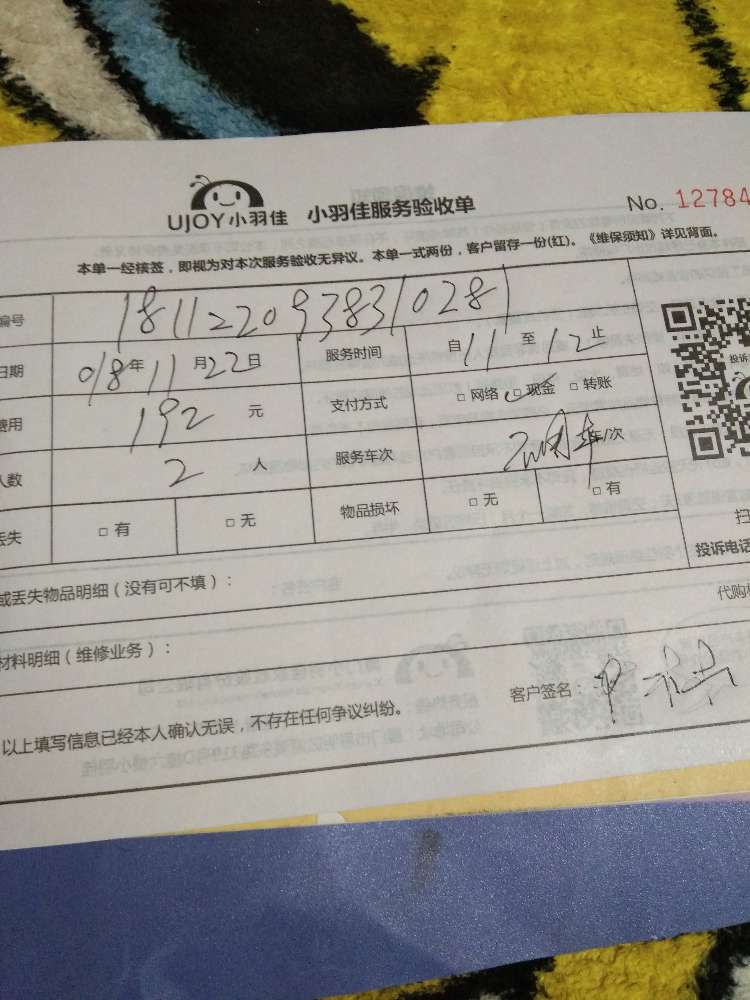 UJOY小羽佳 小羽佳服务验收单 No. 12784
本单一经核签，即视为对本次服务验收无异议。本单一式两份，客户留存一份(红)。《维保须知》详见背面。
编号 181122093831028
日期 018年11月22日 服务时间 自11至12止
费用 192元 支付方式 □ 网络 □ 现金 □ 转账
人数 2人 服务车次 车/次
丢失 □ 有 □ 无 物品损坏 □ 无 □ 有
投诉
扫
投诉电话
或丢失物品明细（没有可不填）：
代购
材料明细（维修业务）：
客户签名：
以上填写信息已经本人确认无误，不存在任何争议纠纷。